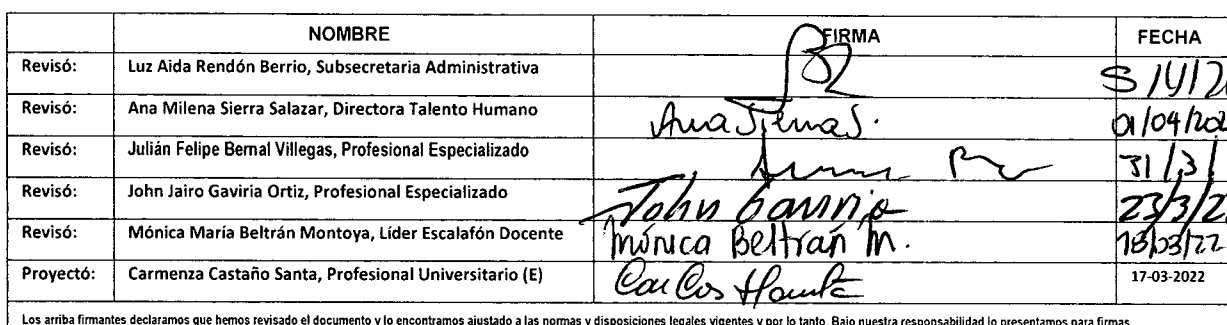 NOMBRE FIRMA FECHA
Revisó: Luz Aida Rendón Berrio, Subsecretaria Administrativa
Revisó: Ana Milena Sierra Salazar, Directora Talento Humano Ana Sierra S. 01/04/202
Revisó: Julián Felipe Bernal Villegas, Profesional Especializado 31/3/
Revisó: John Jairo Gaviria Ortiz, Profesional Especializado John Gaviria 23/3/2
Revisó: Mónica María Beltrán Montoya, Líder Escalafón Docente Mónica Beltrán M. 18/03/22
Proyectó: Carmenza Castaño Santa, Profesional Universitario (E) 17-03-2022
Los arriba firmantes declaramos que hemos revisado el documento y lo encontramos ajustado a las normas y disposiciones legales vigentes y por lo tanto. Bajo nuestra responsabilidad lo presentamos para firmas